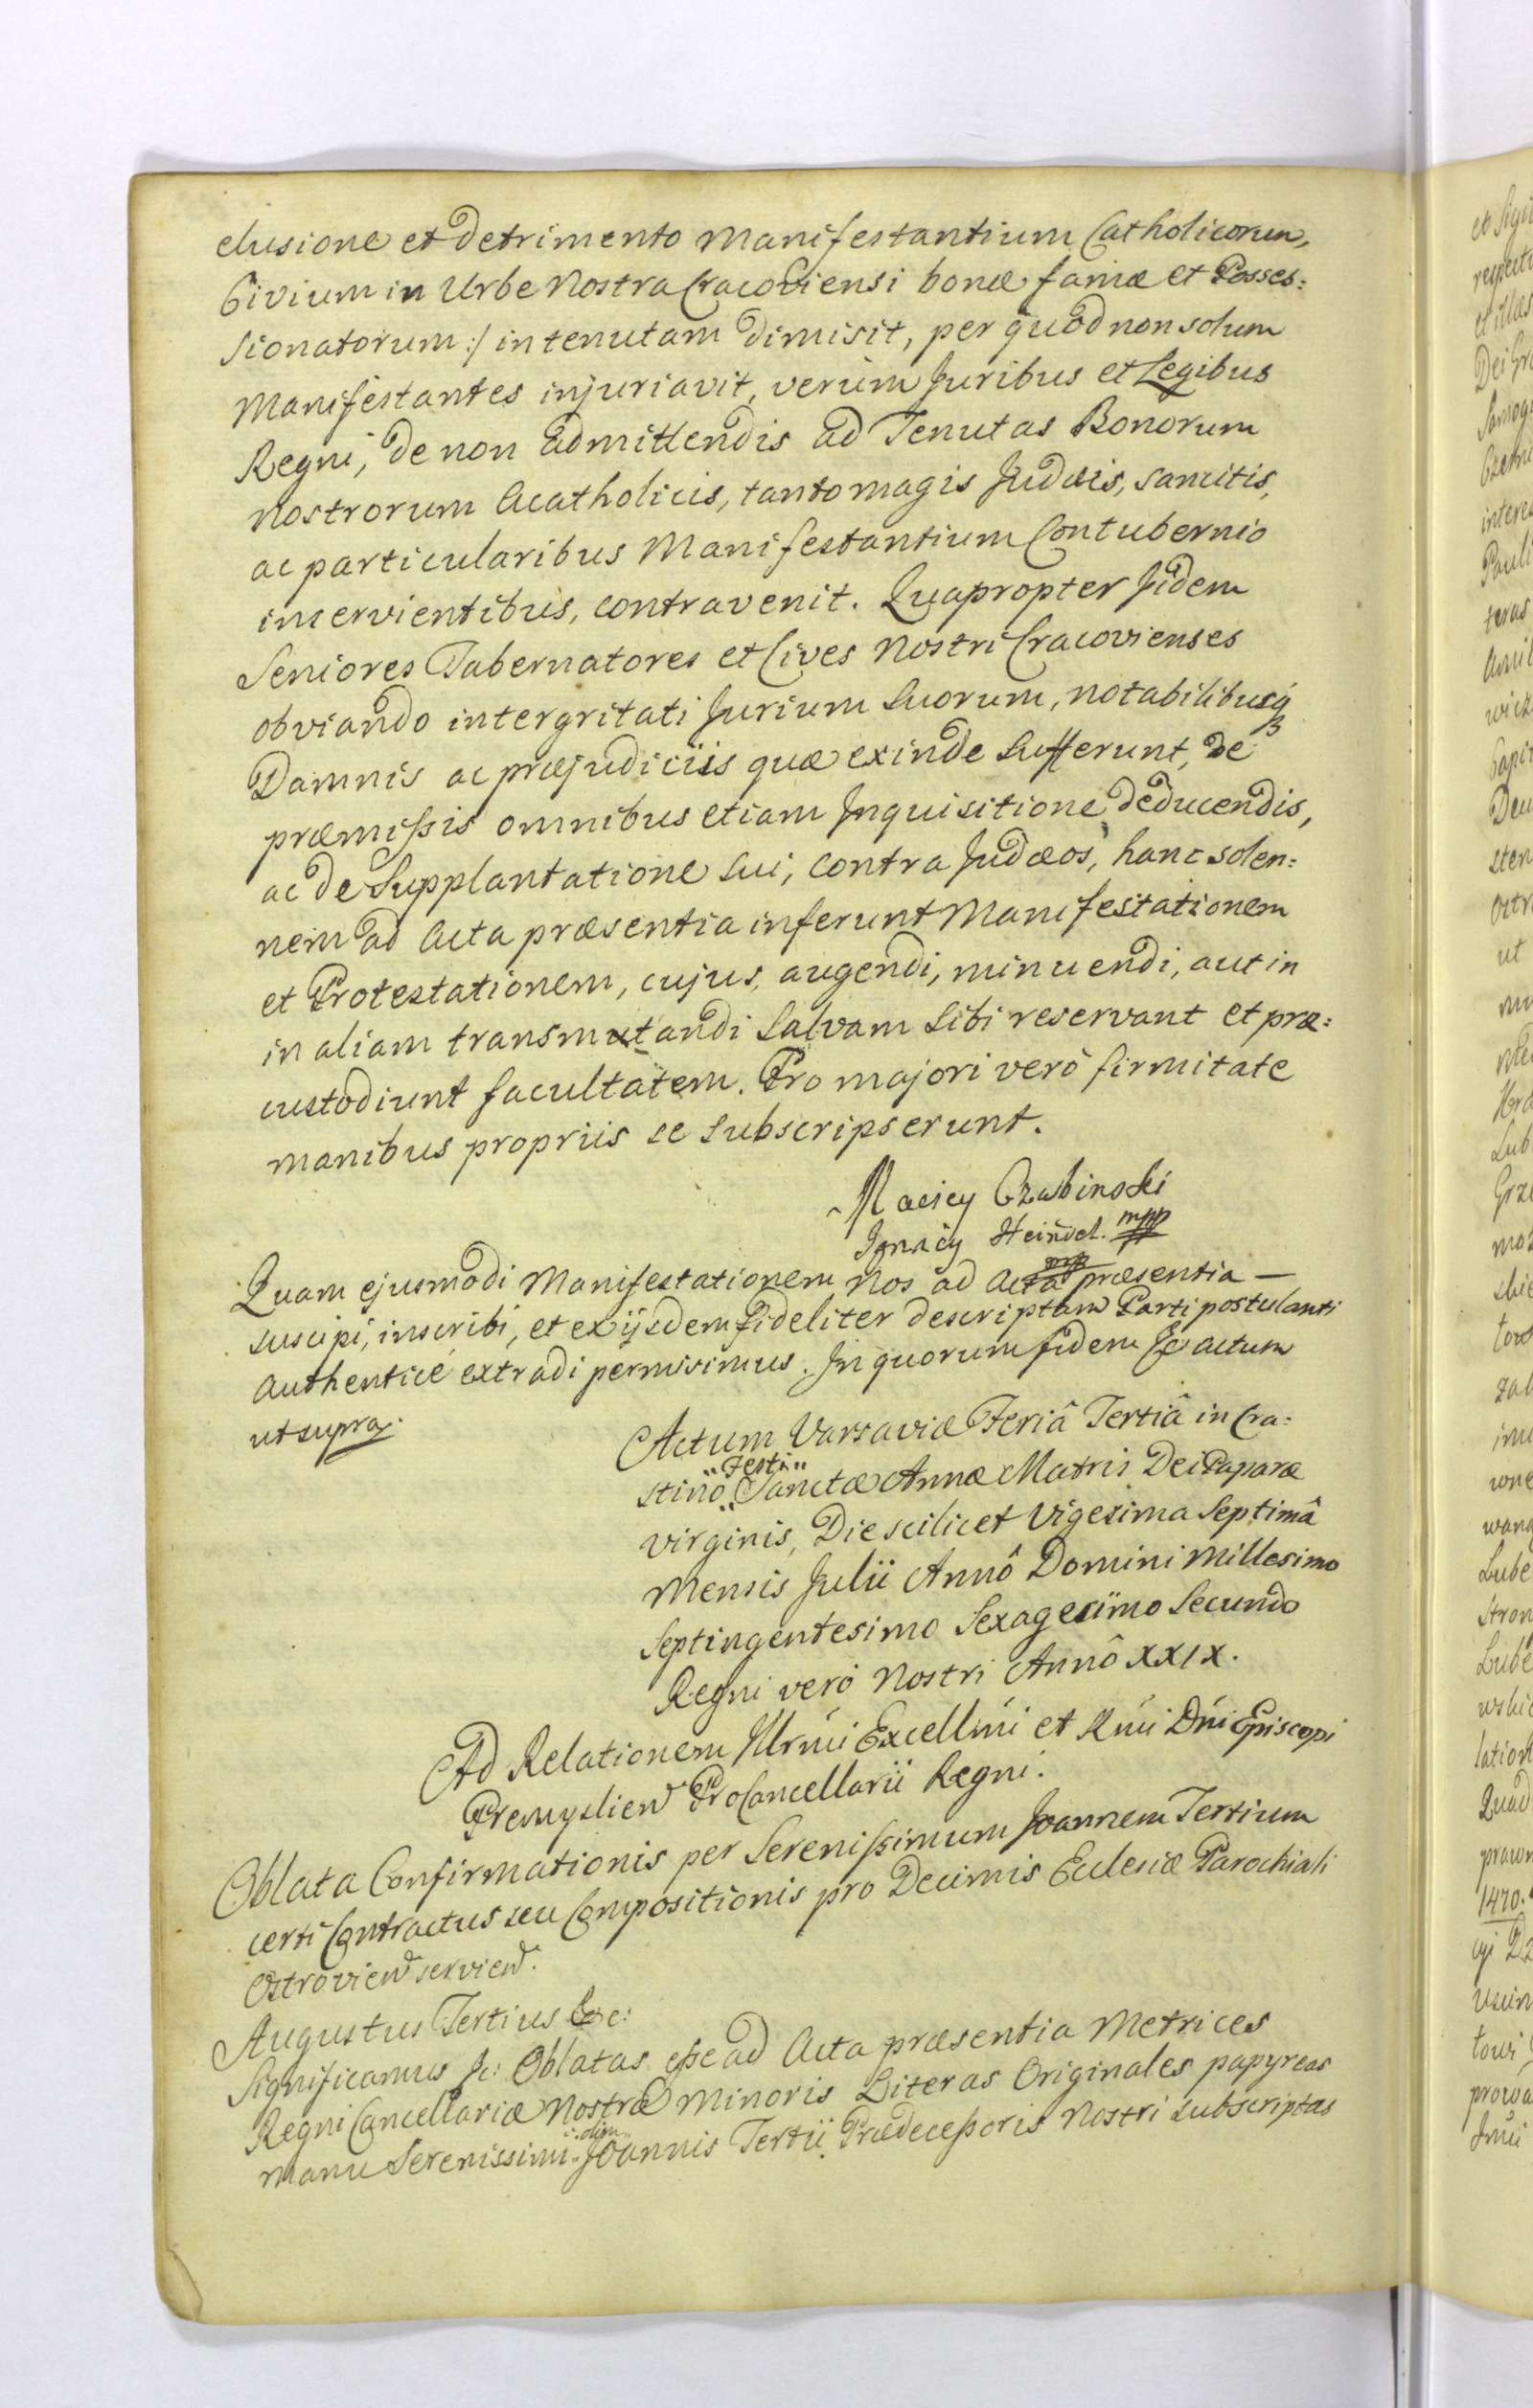 clusione et detrimento Manifestantium Catholicorum,
Civium in Urbe Nostra Cracoviensi bonæ famæ et Posses:
sionatorum :/ in tenutam dimisit, per quod non solum
Manifestantes injuriavit, verùm Juribus et Legibus
Regni, de non admittendis ad Tenutas Bonorum
Nostrorum Acatholicis, tanto magis Judæis, sancitis,
ac particularibus Manifestantium Contubernio
inservientibus, contravenit. Quapropter Jidem
Seniores Tabernatores et Cives Nostri Cracovienses
obviando intergritati Jurium Suorum, notabilibusq3
Damnis ac præjudiciis quæ exinde sufferunt, de
præmissis omnibus etiam Inquisitione deducendis,
ac de Supplantatione sui, contra Judæos, hanc solen:
nem ad Acta præsentia inferunt Manifestationem
et Protestationem, cujus, augendi, minuendi, aut in
in aliam transmutandi Salvam Sibi reservant et præ:
custodiunt facultatem. Pro majori verò firmitate
manibus propriis se Subscripserunt.
Maciey Czabinski
Jgnacy Heindel. mpp
mp
Quam ejusmodi Manifestationem Nos ad Acta præsentia —
suscipi, inscribi, et ex ijsdem fideliter descriptam Parti postulanti
authenticè extradi permisimus. In quorum fidem &c actum
ut supra.
Actum Varsaviæ Feriâ Tertiâ in Cra:
"Festi"
stino Sanctæ Annæ Matris Deiparæ
virginis, Die scilicet Vigesima Septimâ
Mensis Julii Annô Domini Millesimo
Septingentesimo Sexagesimo Secundo
Regni verò Nostri Annô XXIX.
Ad Relationem Illrmi Excellmi et Rmi Dni Episcopi
Premyslien ProCancellarii Regni.
Oblata Confirmationis per Serenissimum Joannem Tertium
certi Contractus seu Compositionis pro Decimis Eclesiæ Parochiali
Ostrovien servien.
Augustus Tertius &c:
Significamus &c: Oblatas esse ad Acta præsentia Metrices
Regni Cancellariæ Nostræ Minoris Literas Originales papyreas
olim
manu Serenissimi Joannis Tertii Prædecessoris Nostri subscriptas